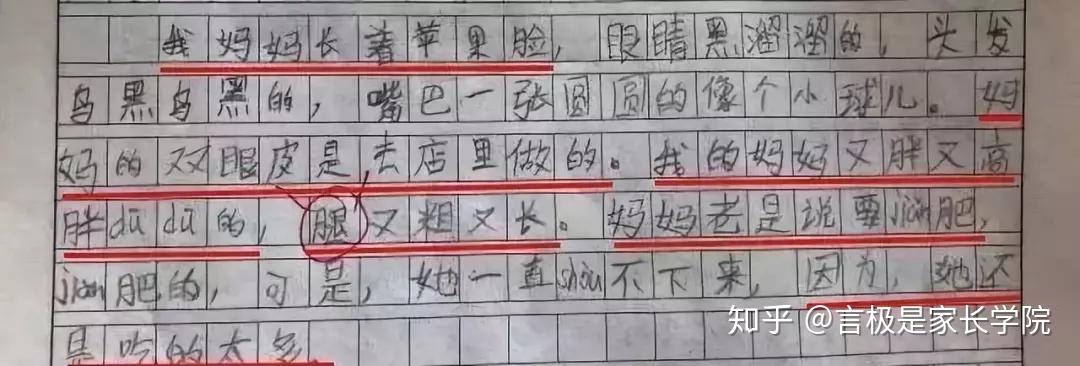 我妈妈长着苹果脸，眼睛黑溜溜的，头发
乌黑乌黑的，嘴巴一张圆圆的像个小球儿。妈
妈的双眼皮是去店里做的。我的妈妈又胖又高
胖dūdū的，腿又粗又长。妈妈老是说要jiǎn肥，
jiǎn肥的，可是，她一直shòu不下来，因为，她还
是吃的太多。
知乎 @言极是家长学院